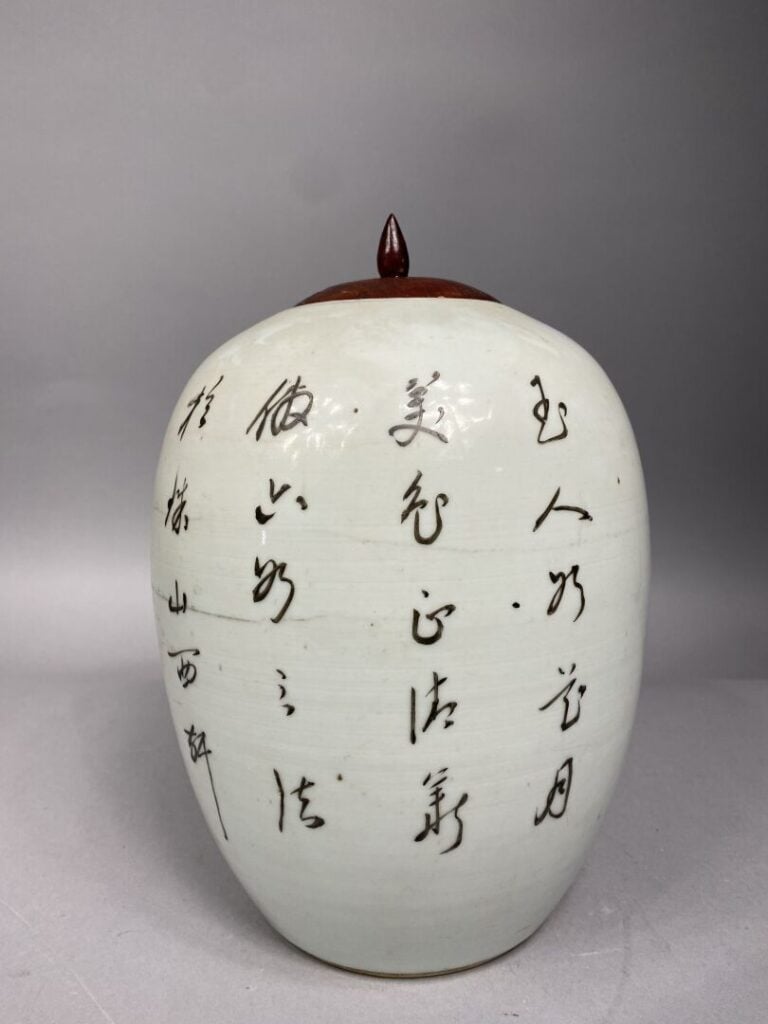 玉人如花月
美色正清新
倣六如之法
於珠山西軒